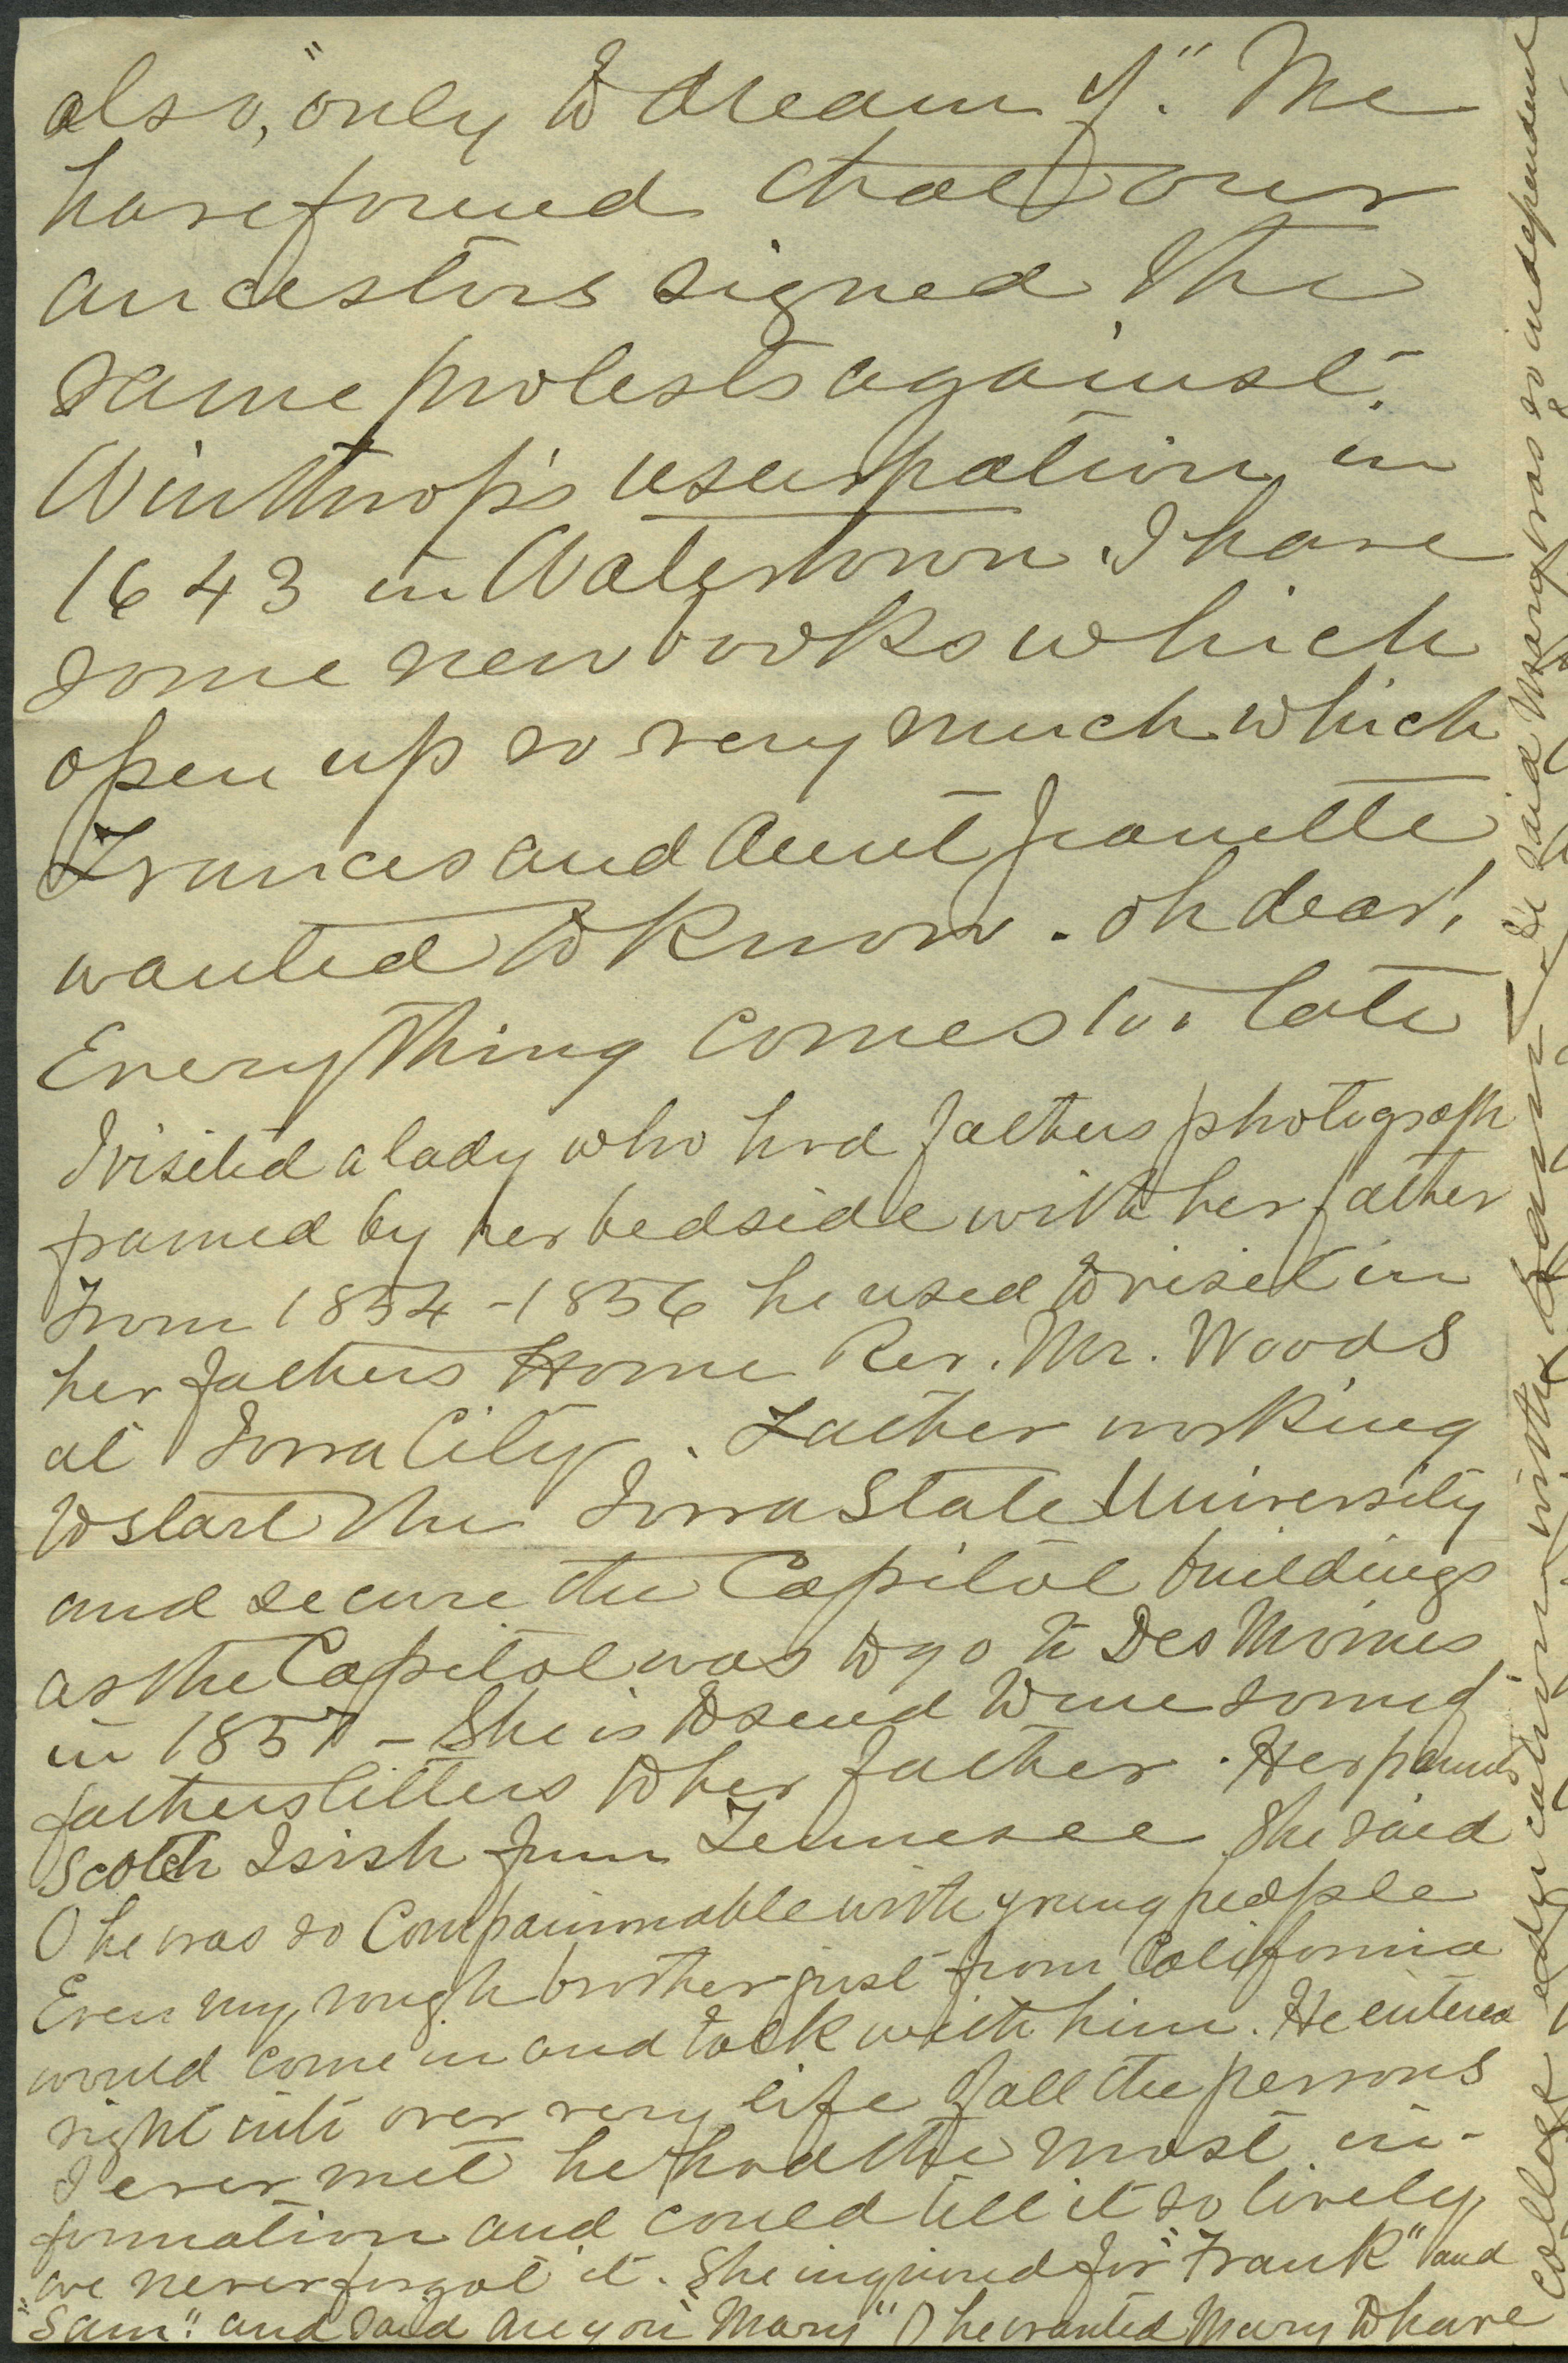 also, "only to dream of." We
have found that our
ancestors signed the
same protests against
Winthrop's usurpation in
1643 in Watertown. I have
some new books which
open up so very much which
Frances and Aunt Jeanette
wanted to know. Oh dear!
Everything comes too late
I visited a lady who had fathers photograph
framed by her bedside with her father
From 1854-1856 he used to visit in
her fathers Home Rev. Mr. Woods
at Iowa City. Father working
to start the Iowa State University
and secure the Capitol buildings
as the Capitol was to go to Des Moines
in 1857 - She is to send to me some of
fathers letters to her father. Her parents
Scotch Irish from Tennesee She said
O he was so Companionable with young people
Even my rough brother just from California
would come in and talk with him. He entered
right into over very life of all the persons
I ever met he had the most in-
formation and could tell it so lively
we never forgot it. She inquired for "Frank" and
"Sam." and said are you "Mary" O he wanted Mary to have
college education with the
He said Mary was so independent